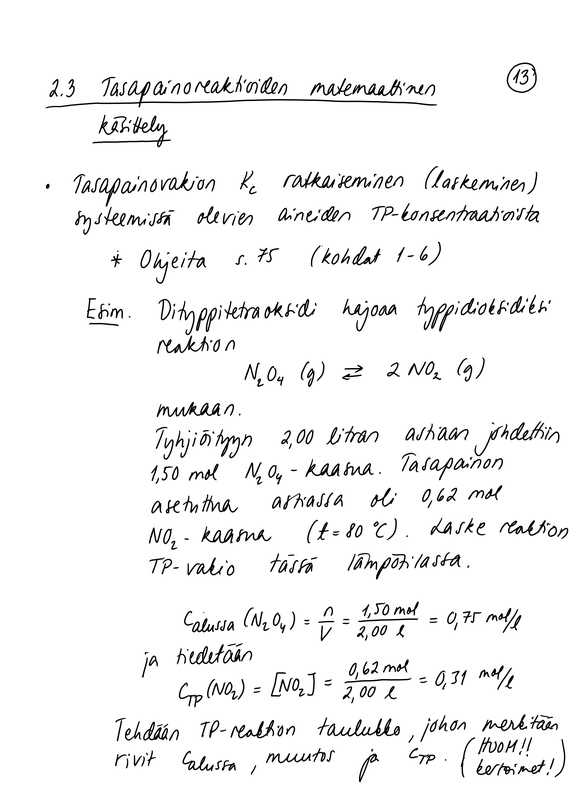 13
2.3 Tasapainoreaktioiden matemaattinen
käsittely
• Tasapainovakion Kc ratkaiseminen (laskeminen)
systeemissä olevien aineiden TP-konsentraatioista
* Ohjeita s. 75 (kohdat 1-6)
Esim. Dityppitetraoksidi hajoaa typpidioksidiksi
reaktion
N₂O₄ (g) ⇄ 2 NO₂ (g)
mukaan.
Tyhjiöityyn 2,00 litran astiaan johdettiin
1,50 mol N₂O₄-kaasua. Tasapainon
asetuttua astiassa oli 0,62 mol
NO₂-kaasua (t = 80 °C). Laske reaktion
TP-vakio tässä lämpötilassa.
Calussa (N₂O₄) = n/V = 1,50 mol / 2,00 l = 0,75 mol/l
ja tiedetään
CTP (NO₂) = [NO₂] = 0,62 mol / 2,00 l = 0,31 mol/l
Tehdään TP-reaktion taulukko, johon merkitään
rivit Calussa, muutos ja CTP. (HUOM!!
kertoimet!)